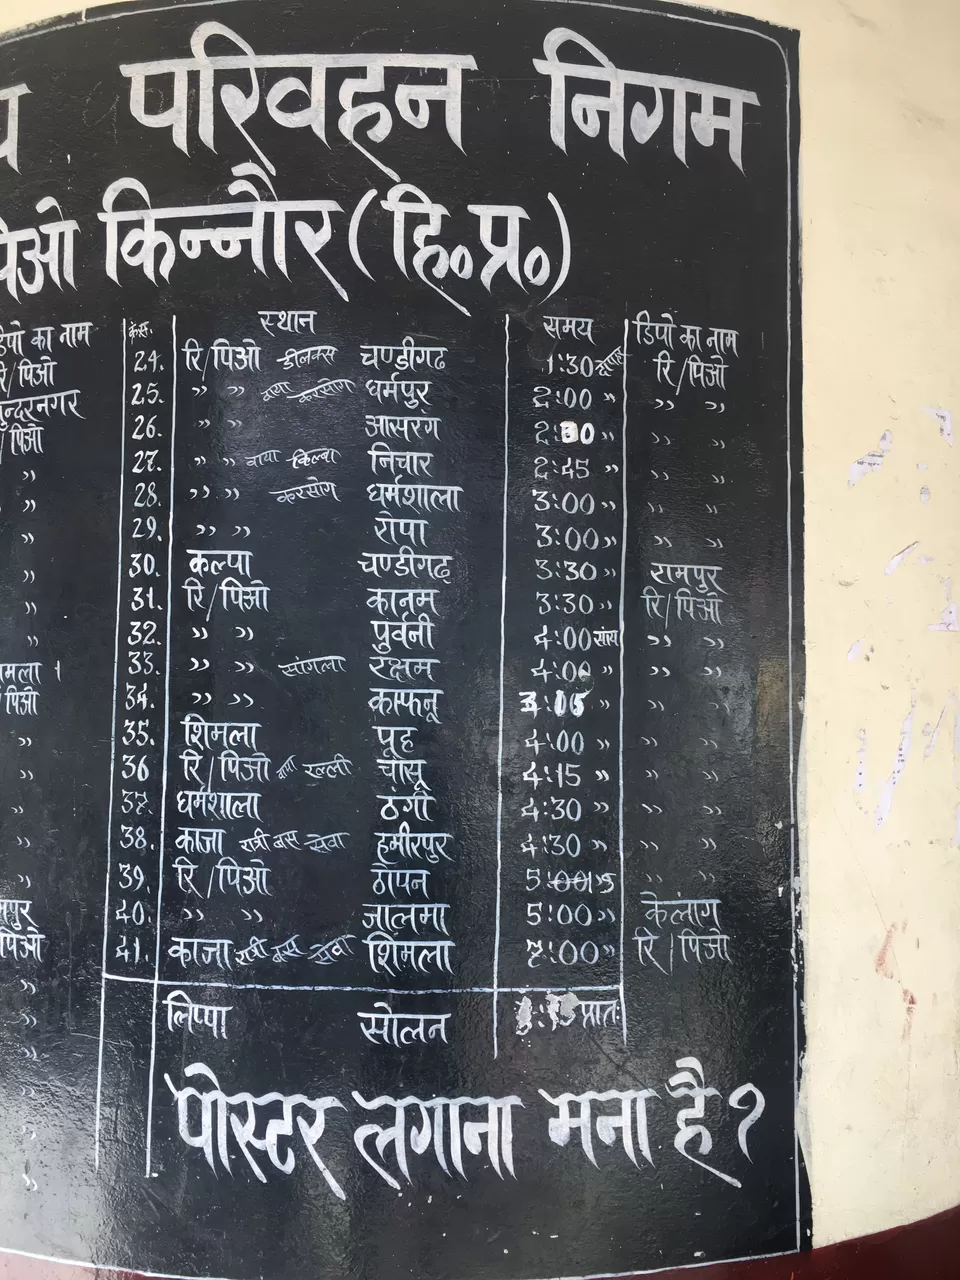 परिवहन निगम
पिओ किन्नौर (हि॰प्र॰)
डिपो का नाम क्र॰स॰ स्थान समय डिपो का नाम
रि/पिओ 24. रि/पिओ डीलक्स चण्डीगढ 1:30 रि/पिओ
सुन्दरनगर 25. ,, ,, वाया करसोग धर्मपुर 2:00 ,, ,, ,,
/पिओ 26. ,, ,, आसरंग 2:30 ,, ,, ,,
,, 27. ,, ,, वाया किल्बा निचार 2:45 ,, ,,
,, 28. ,, ,, करसोग धर्मशाला 3:00 ,, ,, ,,
,, 29. ,, ,, रोपा 3:00 ,, ,, ,,
,, 30. कल्पा चण्डीगढ़ 3:30 ,, रामपुर
,, 31. रि/पिओ कानम 3:30 ,, रि/पिओ
,, 32. ,, ,, पुर्वनी 4:00 सांय ,, ,,
32. 33. ,, ,, सांगला रक्षम 4:00 ,, ,, ,,
/पिओ 34. ,, ,, काफनू ,, ,, ,,
,, 35. शिमला पूह 4:00 ,, ,, ,,
,, 36 रि/पिओ वाया रल्ली चांसू 4:15 ,, ,, ,,
,, 37. धर्मशाला ठंगी 4:30 ,, ,, ,,
,, 38. काजा रात्री बस सेवा हमीरपुर 4:30 ,, ,, ,,
,, 39. रि/पिओ ठोपन ,, ,,
40. ,, ,, जालमा 5:00 ,, केलांग
पिओ 41. काजा रात्री बस सेवा शिमला 7:00 ,, रि/पिओ
लिप्पा सोलन प्रातः
पोस्टर लगाना मना है?